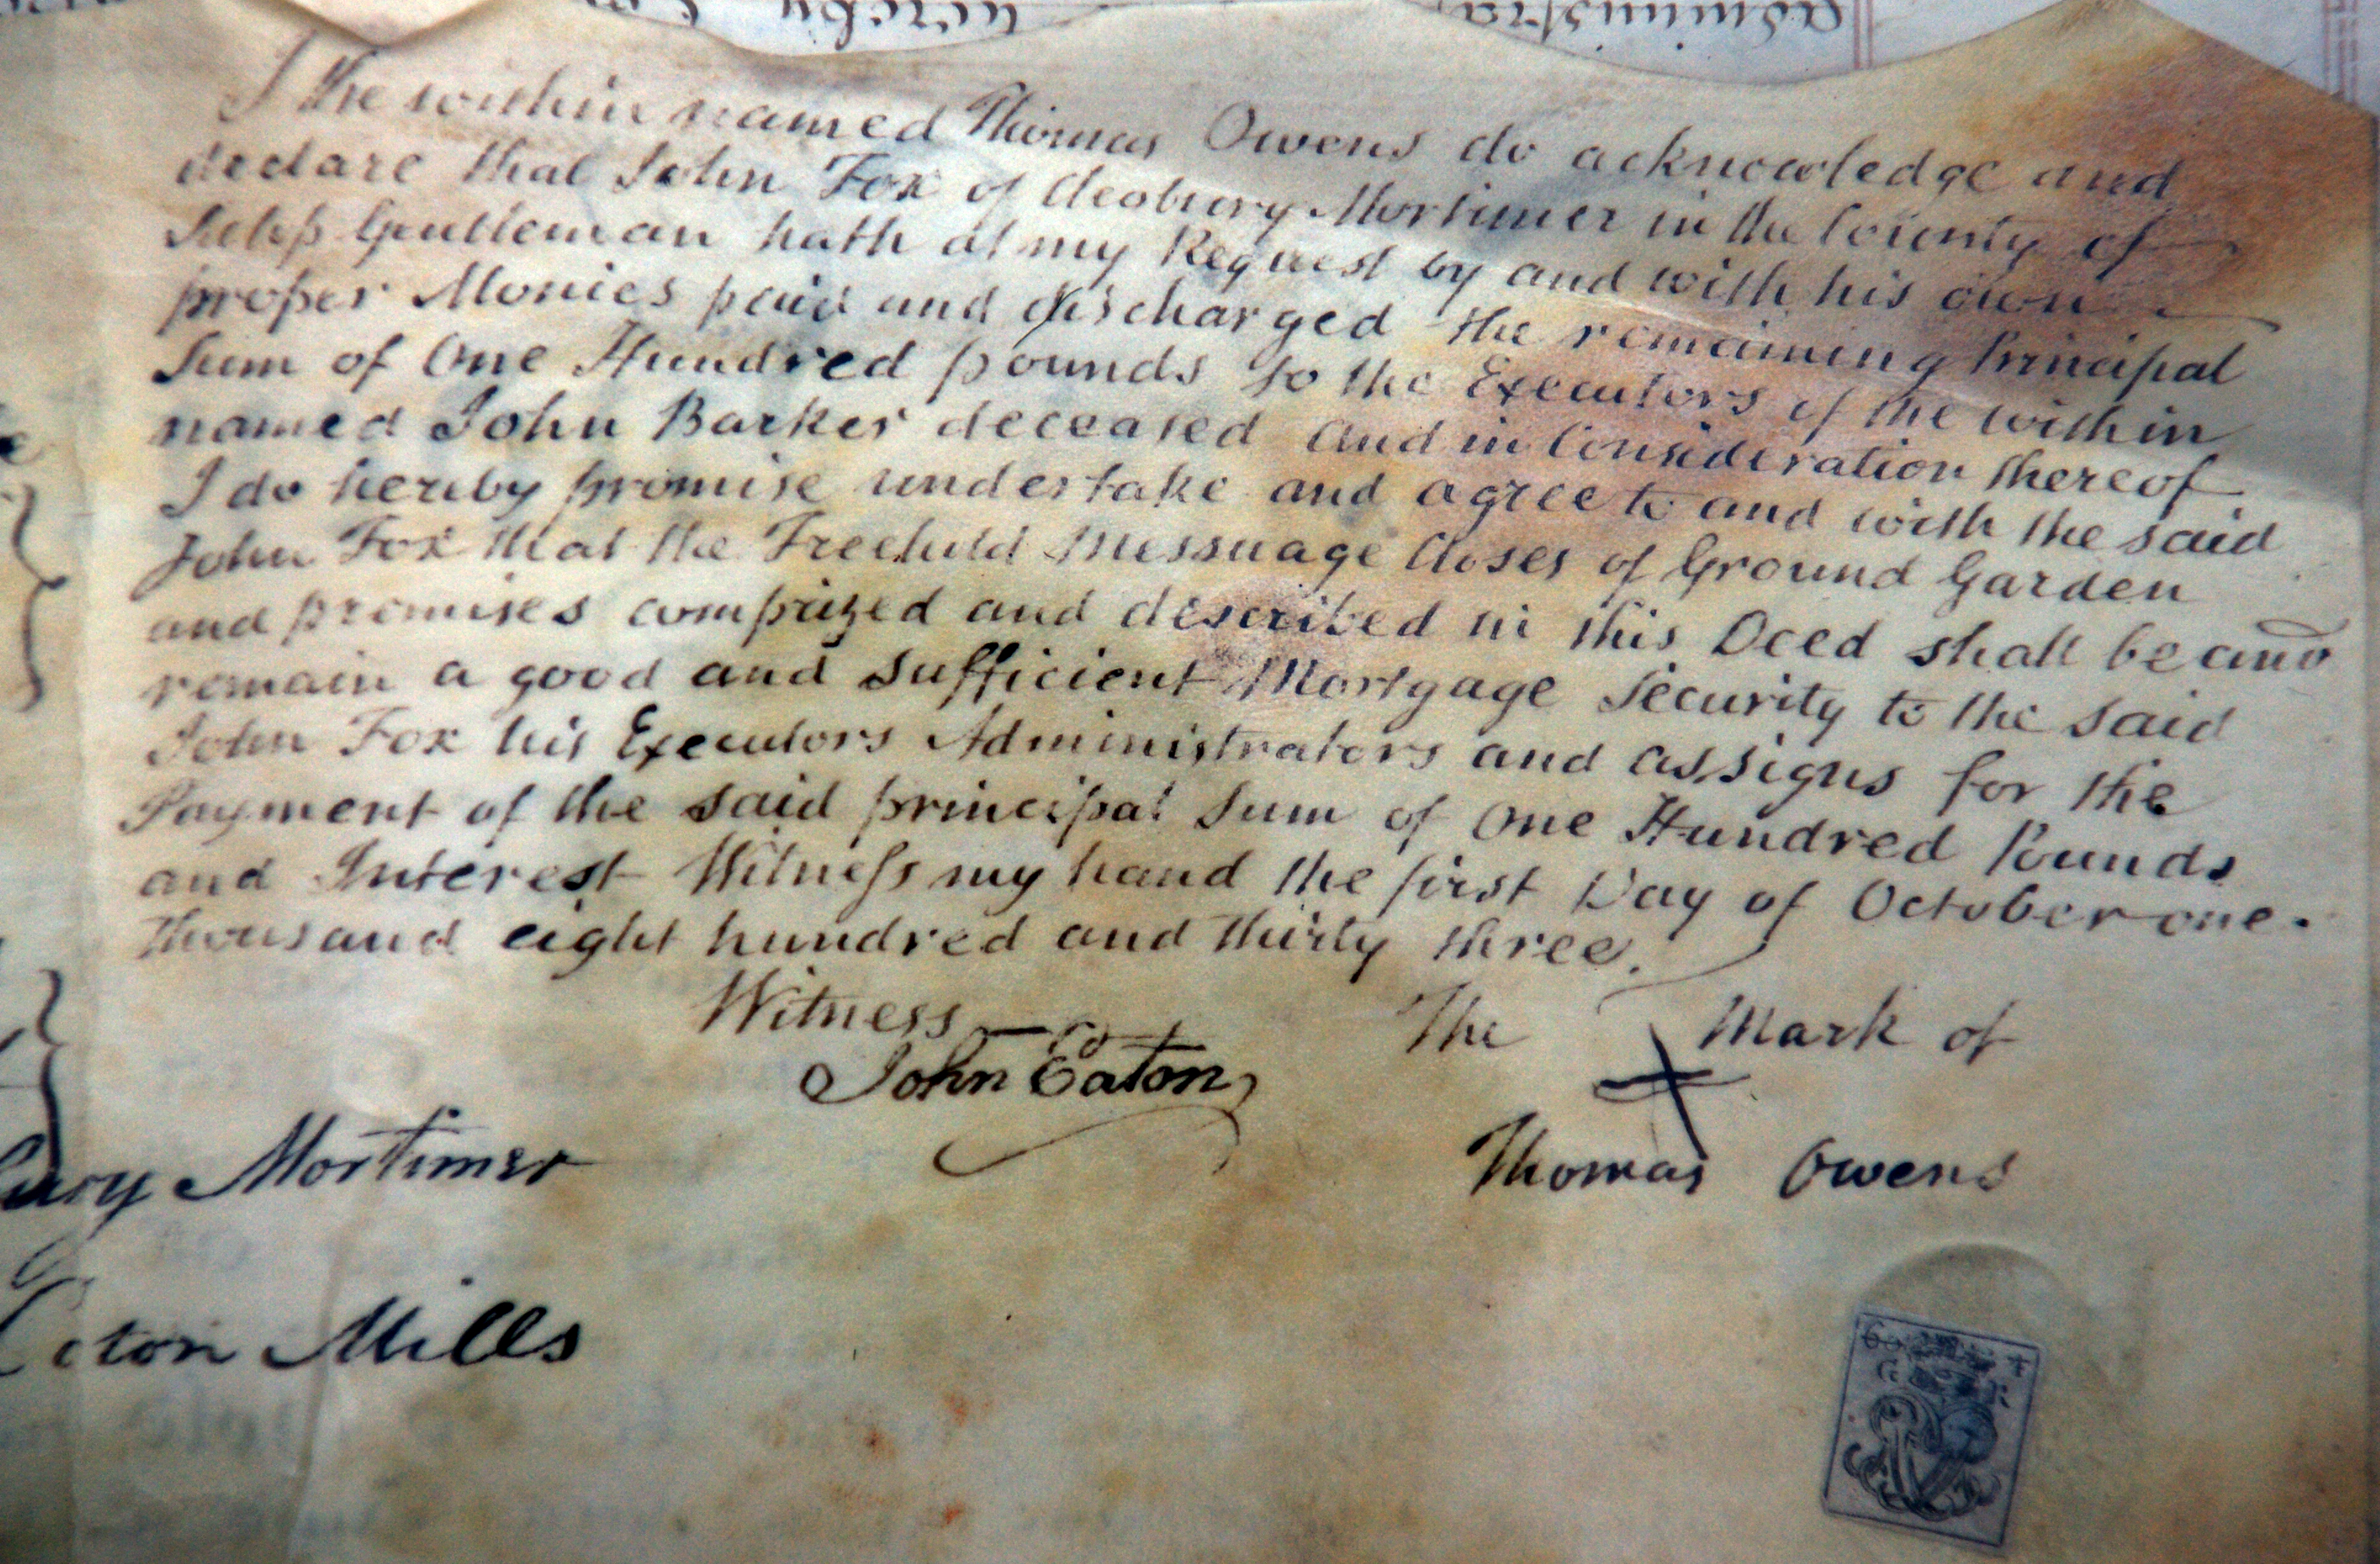 hereby Administra
I the within named Thomas Owens do acknowledge and
declare that John Fox of Cleobury Mortimer in the County of
Salop Gentleman hath at my Request by and with his own
proper Monies paid and discharged the remaining Principal
Sum of One Hundred pounds to the Executors of the within
named John Barker deceased and in Consideration thereof
I do hereby promise undertake and agree to and with the said
John Fox that the Freehold Messuage Closes of Ground Garden
and premises comprized and described in this Deed shall be and
remain a good and sufficient Mortgage Security to the said
John Fox his Executors Administrators and assigns for the
Payment of the said principal Sum of One Hundred Pounds
and Interest Witneſs my hand the first Day of October one
thousand eight hundred and thirty three.
Witness
John Eaton
The Mark of
Thomas Owens
Mortimer
Mills